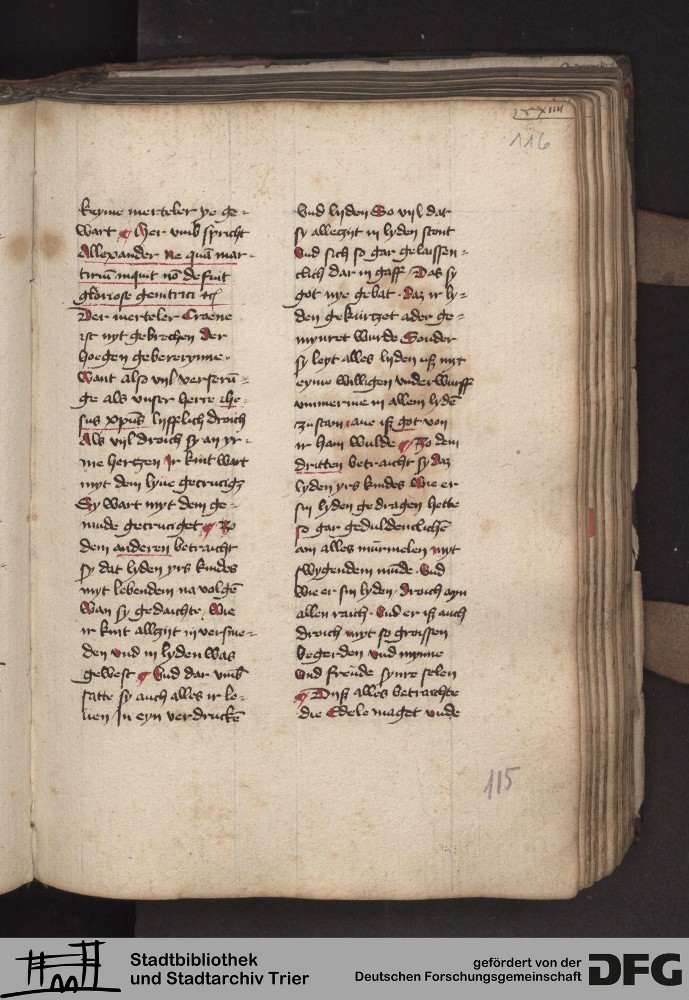 xxiiii
116
keyme merteler ye ge-
wart ¶ Her vmb spricht
Allexander Ne quā mar-
tiriū inquit nō defuit
gloriose genitrici rc̄
Der merteler Croene
ist nyt gebrechen der
hoegen gebererynne.
Want also vil verserū-
ge als vnser herre ihe-
sus xp̄us lyfflich droich
Als vil droich sy an yr-
me hertzen Ir kint wart
myt dem lyue gecruciget
Sy wart myt dem ge-
mude gecruciget ¶ Zo
dem anderen betraicht
sy dat lyden yrs kindes
myt lebendem na volgē
Wan sy gedaichte. Wie
ir kint allzyt in versme-
den vnd in lyden was
gewest ¶ Vnd dar vmb
satte sy auch alles ir le-
uen In eyn verdruckē
Vnd lyden So vyl dat
sy allezyt in lyden stont
Vnd sich so gar gelaissen-
clich dar in gaff. Das sy
got nye gebat. Daz ir ly-
den gekurtzet ader ge-
mynret wurde Sonder
sy leyt alles lyden uß myt
eyme willigen vnderwurff
vmmerme in allem lydē
zu stain. ane iß got von
ir ham wulde ¶ Zo dem
dritten betraicht sy daz
lyden yrs kindes Wie er
sin lyden gedragen hette
so gar geduldenclichē
ain alles murmelen myt
swygendem mūde. Vnd
wie er sin lyden. droich ayn
allen raich. Vnd er iß auch
droich myt so groissen
begerden vnd mynne
Vnd freude synre selen
¶ Dyß alles betrachte
die Edele maget vnde
115
Stadtbibliothek
und Stadtarchiv Trier
gefördert von der
Deutschen Forschungsgemeinschaft
DFG